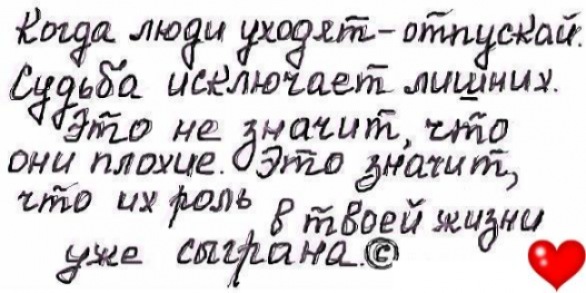 Когда люди уходят - отпускай.
Судьба исключает лишних.
Это не значит, что
они плохие. Это значит,
что их роль в твоей жизни
уже сыграна.©